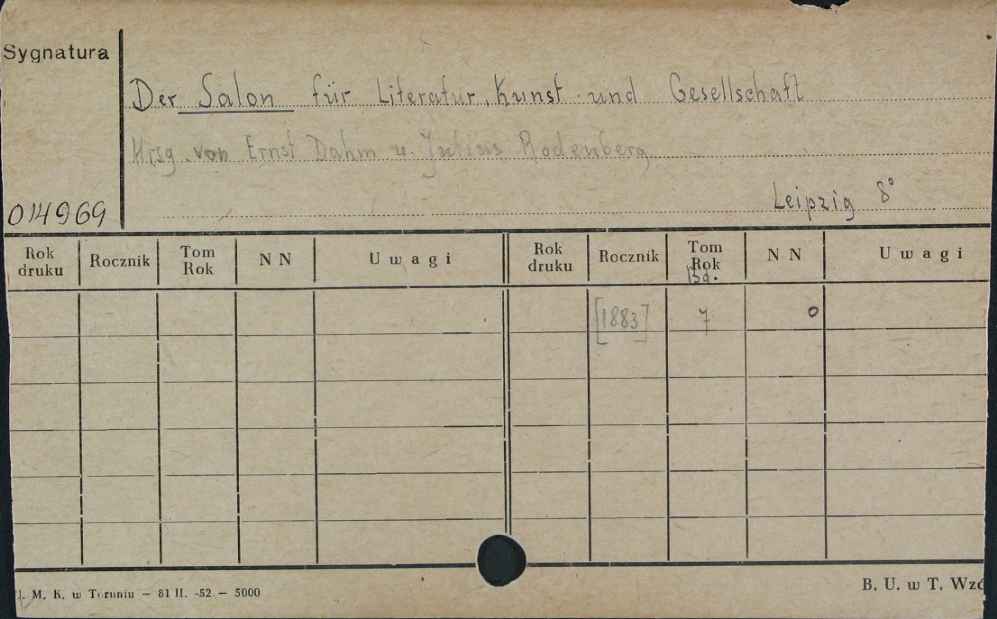 Sygnatura
Der Salon für Literatur, Kunst und Gesellschaft
Hrsg. von Ernst Dahm u. Julius Rodenberg
Leipzig 8°
014969
Rok druku Rocznik Tom Rok N N Uwagi Rok druku Rocznik Tom Rok N N Uwagi
Bd.
[1883] 7 0
M. K. w Toruniu — 81 II. -52 — 5000
B. U. w T.